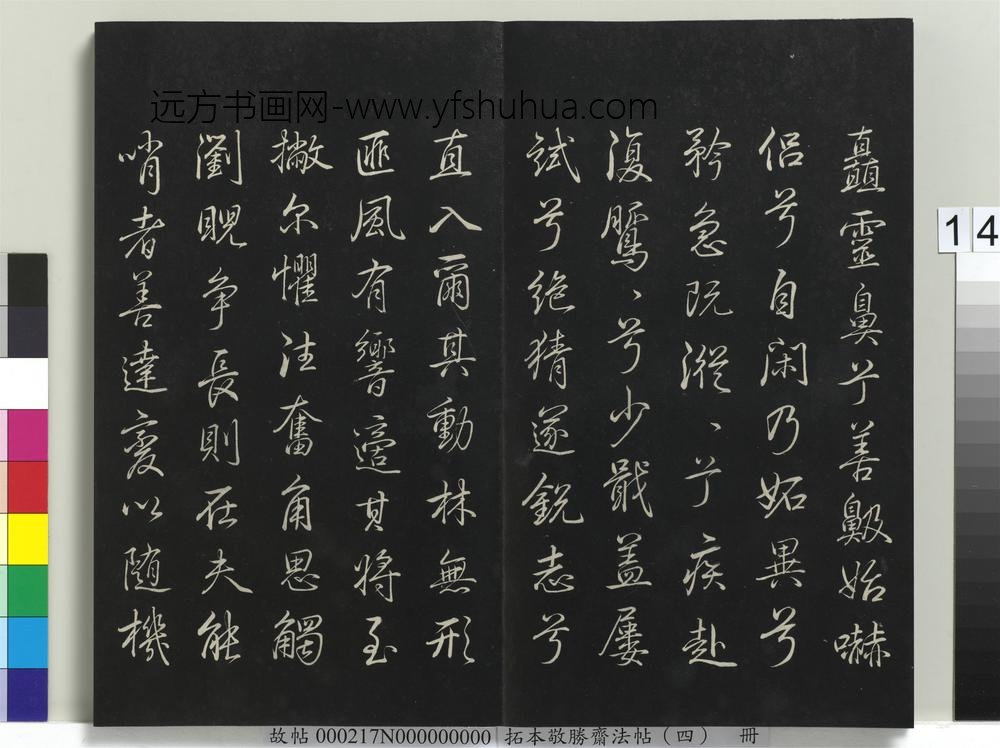 矗靈鼻兮善齅始嚇
侣兮自閑乃妬異兮
矜急既漎、兮疾赴
復驚、兮少戢蓋屢
試兮絶猜遂銳志兮
直入爾其動林無形
匪風有響適其將至
撇尔懼法奮角思觸
瀏睨争長則在夫能
哨者善達變以随機
远方书画网-www.yfshuhua.com
14
故帖 000217N000000000 拓本敬勝齋法帖（四） 冊